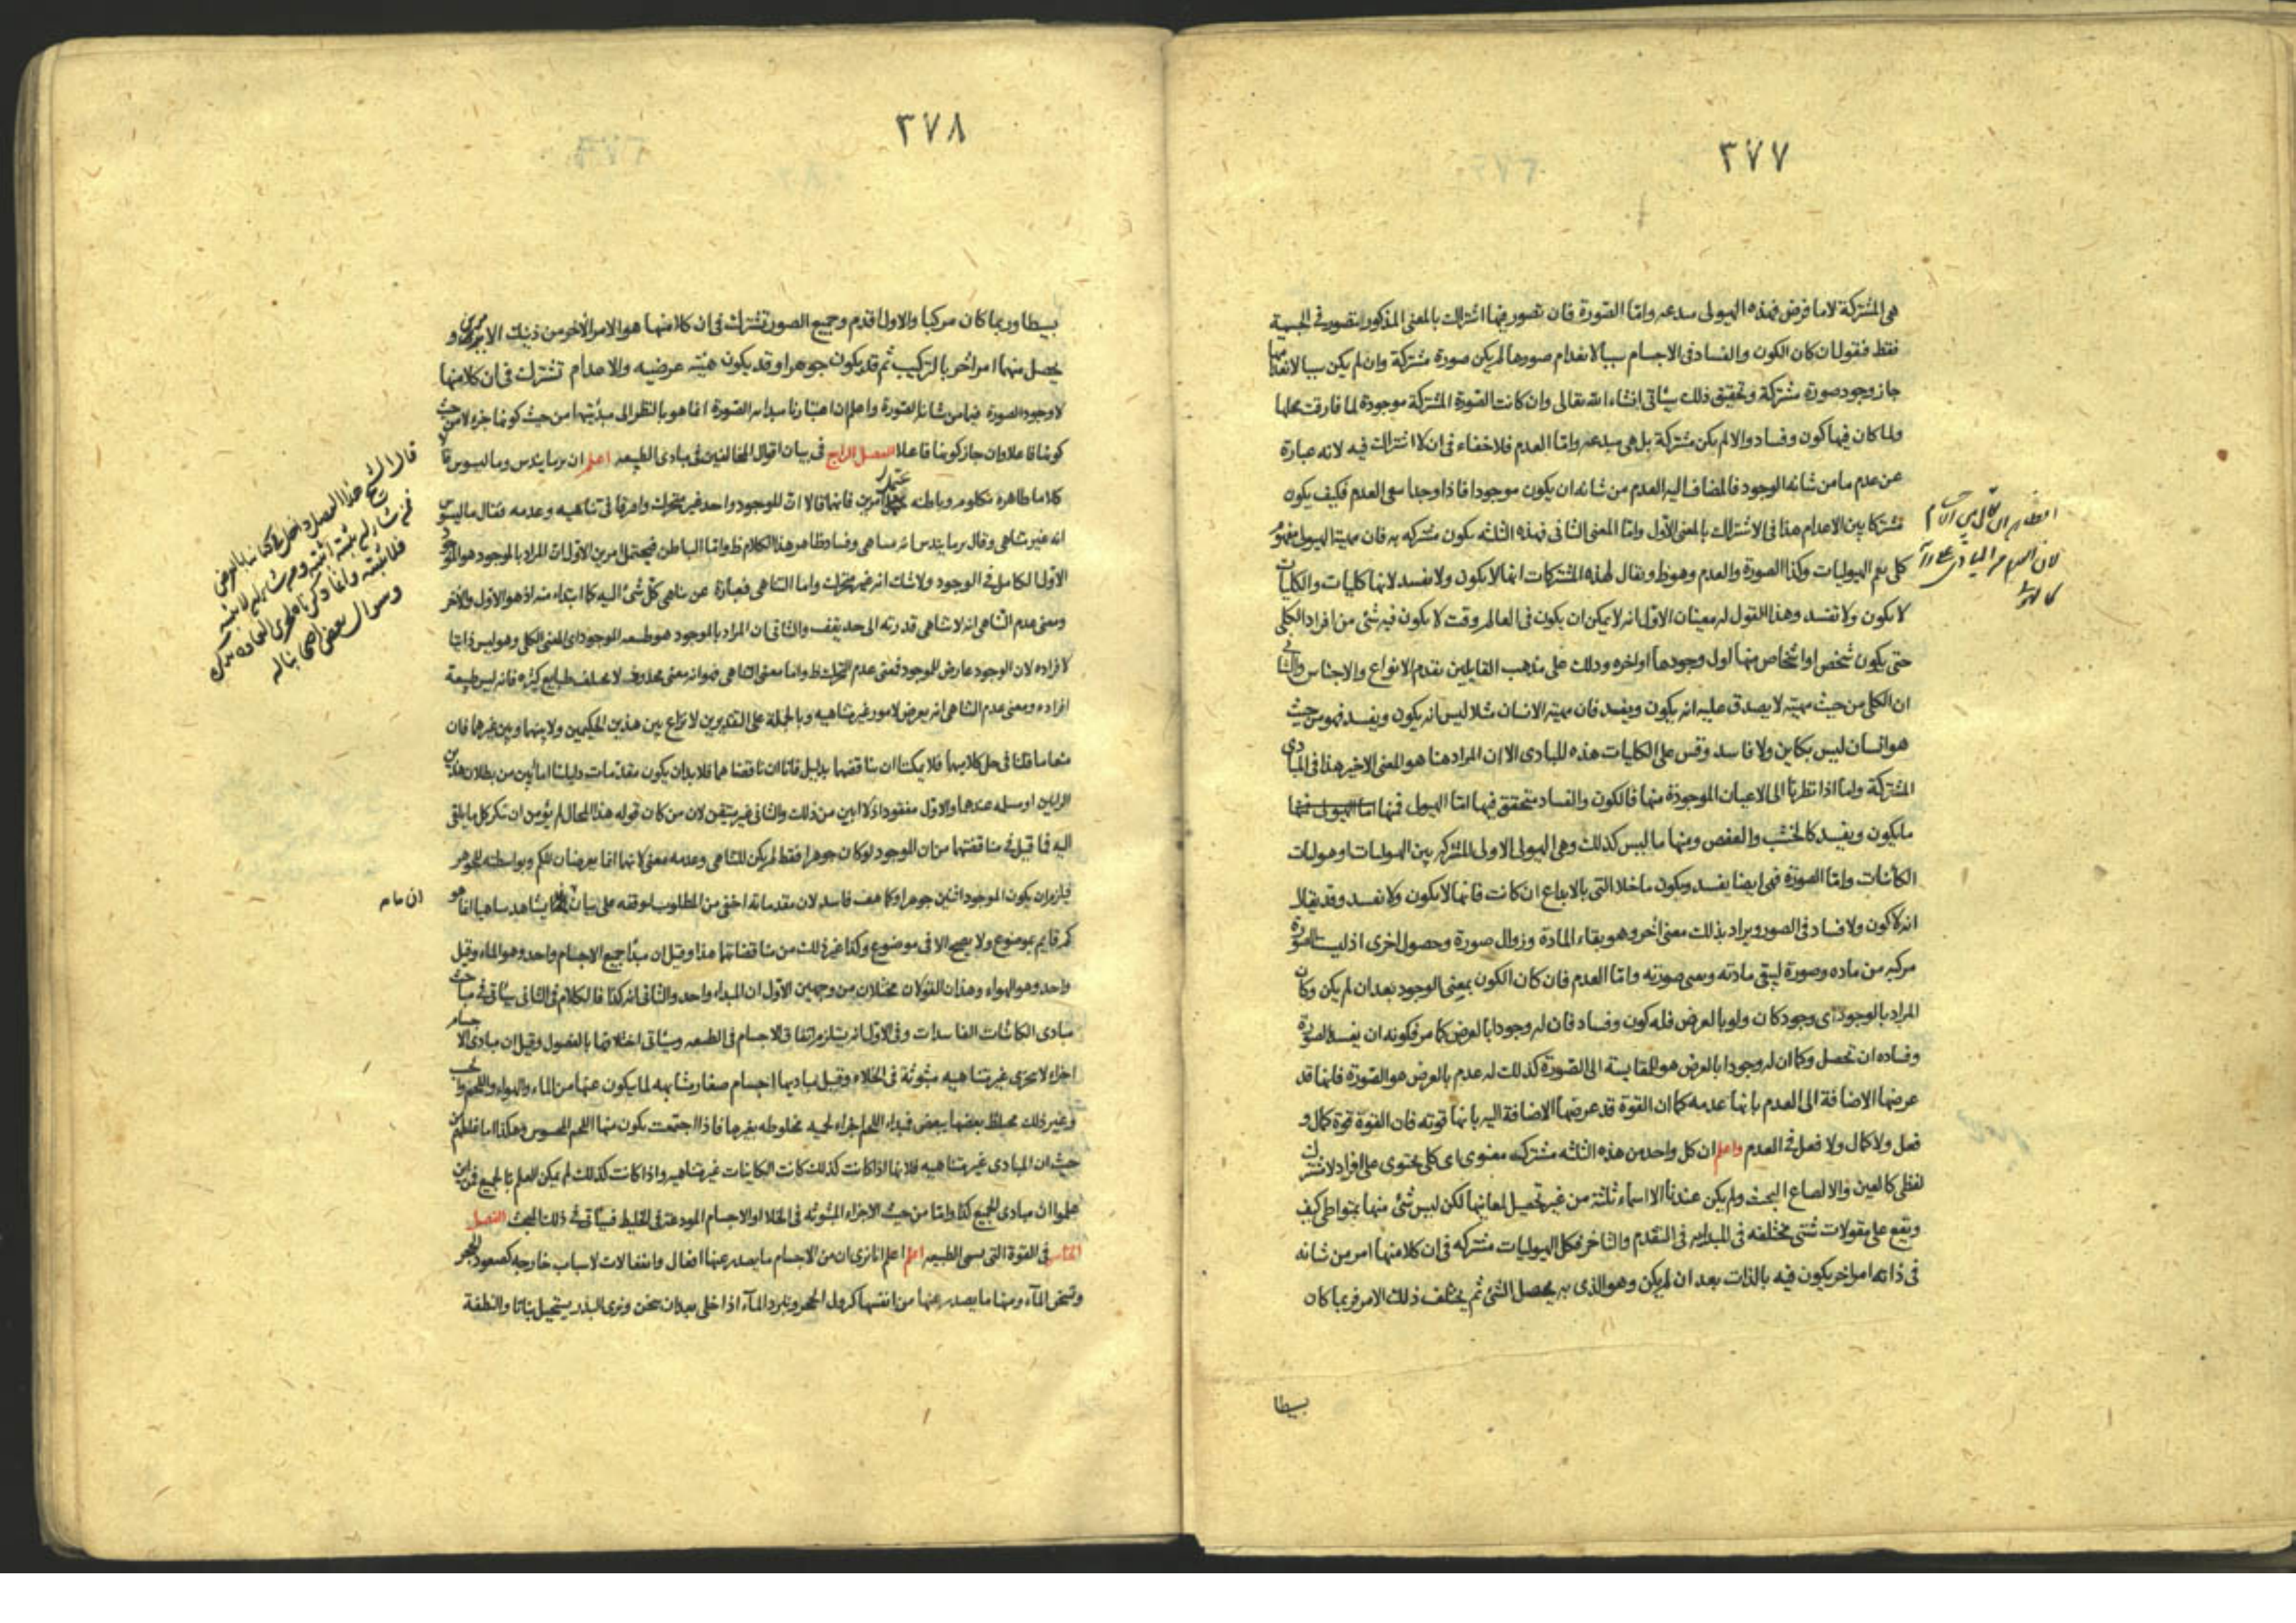 ٣٧٧
هى المشتركة لا ما فرض فهذه الهيولى مبدعه واما الصورة فان تصور فيها اشتراك بالمعنى المذكور لتصور فى الجسمية
فقط فنقول ان كان الكون والفساد فى الاجسام سببا لانعدام صورها لم يكن صورة مشتركة وان لم يكن سببا لانعدامها
جاز وجود صورة مشتركة وتحقيق ذلك سيأتى انشاء الله تعالى وان كانت الصورة المشتركة موجودة لما فارقت محلها
ولما كان فيها كون وفساد والا لم يكن مشتركة بل هى مبدعه واما العدم فلا خفاء فى ان لا اشتراك فيه لانه عبارة
عن عدم ما من شانه الوجود فالمضاف اليه العدم من شانه ان يكون موجودا فاذا وجد سمى العدم فكيف يكون
مشتركا بين الاعدام هذا فى الاشتراك بالمعنى الاول واما المعنى الثانى فهذه الثلثه يكون مشتركه به فان مهية الهيولى مفهوم
كلى يعم الهيوليات وكذا الصورة والعدم وهو ظ ويقال لهذه المشتركات انها لا يكون ولا يفسد لانها كليات والكليات
لا يكون ولا تفسد وهذا القول له معنيان الاول انه لا يمكن ان يكون فى العالم وقت لا يكون فيه شئ من افراد الكلى
حتى يكون شخص او اشخاص منها اول وجودها او اخره وذلك على مذهب القايلين بقدم الانواع والاجناس والثانى
ان الكلى من حيث مهيته لا يصدق عليه انه يكون ويفسد فان مهية الانسان مثلا ليس انه يكون ويفسد فهو من حيث
هو انسان ليس بكاين ولا فاسد وقس على الكليات هذه المبادى الا ان المراد هنا هو المعنى الاخير هذا فى المبادى
المشتركة واما اذا نظرنا الى الاعيان الموجودة منها فالكون والفساد متحقق فيها اما الهيولى فمنها
ما يكون ويفسد كالخشب والعفص ومنها ما ليس كذلك وهى الهيولى الاولى المشتركه بين الهيوليات او هيوليات
الكائنات واما الصورة فهى ايضا يفسد ويكون ما خلا التى بالابداع ان كانت فانها لا يكون ولا تفسد وقد يقال
انه لا كون ولا فساد فى الصور ويراد بذلك معنى اخر وهو بقاء المادة وزوال صورة وحصول اخرى اذ ليست الصورة
مركبه من ماده وصورة ليبقى مادته ويعنى صورته واما العدم فان كان الكون بمعنى الوجود بعد ان لم يكن وكان
المراد بالوجود اى وجود كان ولو بالعرض فله كون وفساد فان له وجودا بالعرض كما مر فكونه ان يفسد الصورة
وفساده ان تحصل وكما ان له وجودا بالعرض هو المقايسة الى الصورة كذلك له عدم بالعرض هو الصورة فانها قد
عرضها الاضافة الى العدم بانها عدمه كما ان القوة قد عرضها الاضافة اليه بانها قوته فان القوة قوة كمال و
فعل ولا كمال ولا فعل فى العدم واعلم ان كل واحد من هذه الثلثه مشتركه معنوى اى كلى يحتوى على افراد لا مشترك
لفظى كالعين والا لضاع البحث ولم يكن عندنا الا اسماء ثلثة من غير تحصيل لمعانيها لكن ليس شئ منها بمتواطى كيف
ويقع على مقولات شتى مختلفه فى المبدايه فى التقدم والتاخر فكل الهيوليات مشتركه فى ان كلا منها امر من شانه
فى ذاته امر اخر يكون فيه بالذات بعد ان لم يكن وهو الذى به يحصل الشئ ثم يختلف ذلك الامر فربما كان
بسيطا
٣٧٨
بسيطا وربما كان مركبا والاول اقدم وجميع الصور تشترك فى ان كلا منها هو الامر الاخر من ذينك الامرين و
يحصل منهما امر اخر بالتركيب ثم قد يكون جوهرا وقد يكون هيئة عرضيه والاعدام تشترك فى ان كلا منها
لا وجود الصورة فيما من شانه الصورة واعلم ان اعتبارنا مبدايه الصورة انما هو بالنظر الى مبدئيتها من حيث كونها جزء لا من حيث
كونها فاعلا وان جاز كونها فاعلا الفصل الرابع فى بيان اقوال المخالفين فى مبادى الطبيعه اعلم ان برمايندس وماليسوس قالا
كلاما ظاهره وباطنه يحتمل امرين فانهما قالا ان الموجود واحد غير متحرك وافترقا فى تناهيه وعدمه فقال ماليسوس
انه غير متناهى وقال برمايندس انه متناهى وفساد ظاهر هذا الكلام ظ واما الباطن فيحتمل امرين الاول ان المراد بالموجود هو الموجود
الاول الكامل فى الوجود ولا شك انه غير متحرك واما التناهى فعبارة عن تناهى كل شئ اليه كما ابتداء منه اذ هو الاول والاخر
ومعنى عدم التناهى انه لا تناهى قدرته الى حد يقف والثانى ان المراد بالموجود هو طبيعه الموجود اى المعنى الكلى وهو ليس ذاتيا
لافراده لان الوجود عارض للموجود فمعنى عدم التحرك ظ واما معنى التناهى فهو انه معنى محدود لا يختلف طبايع كثيره فانه ليس طبيعة
افراده ومعنى عدم التناهى انه يعرض لامور غير متناهيه وبالجملة على التقديرين لا نزاع بين هذين الحكيمين ولا بينهما وبين غيرهما فان
منعا ما قلنا فى حل كلاميهما فلا يمكننا ان نناقضهما بدليل فانا ان ناقضنا هما فلا بد ان يكون مقدمات دليلنا اما ابين من بطلان هذين
الرايين او مسلمه عندهما والاول مفقود اذ لا ابين من ذلك والثانى غير متيقن لان من كان قوله هذا المحال لم يؤمن ان ينكر كل ما يلقى
اليه فما قيل فى مناقضتهما من ان الموجود لو كان جوهرا فقط لم يكن للتناهى وعدمه معنى لانهما انما يعرضان للكم وبواسطته للجوهر
فيلزم ان يكون الموجود اثنين جوهرا وكما هف فاسد لان مقدماته اخفى من المطلوب لتوقفه على بيان ان ما يشاهد متناهيا انما هو
كم قايم بموضوع ولا يصح الا فى موضوع وكذا غير ذلك من مناقضاتهما هذا وقيل ان مبدا جميع الاجسام واحد وهو الماء وقيل
واحد وهو الهواء وهذان القولان مختلان من وجهين الاول ان المبداء واحد والثانى انه كذا فالكلام فى الثانى سيأتى فى مباحث
مبادى الكائنات الفاسدات وفى الاول انه يستلزم اتفاق الاجسام فى الطبيعه وسيأتى اختلافها بالفصول وقيل ان مبادى الاجسام
اجزاء لا تتجزى غير متناهيه مبثوثة فى الخلاء وقيل مباديها اجسام صغار متشابهه لما يكون عنها من الماء والهواء واللحم
وغير ذلك مختلط بعضها ببعض فمبداء اللحم اجزاء لحميه مخلوطه بغيرها فاذا اجتمعت يكون منها اللحم المحسوس وهكذا اما غلطهم من
حيث ان المبادى غير متناهيه فلانها اذا كانت كذلك كانت الكاينات غير متناهيه واذا كانت كذلك لم يمكن العلم بالجميع فمن اين
علموا ان مبادى الجميع كذا واما من حيث الاجزاء المبثوثه فى الخلا او الاجسام المودعة فى الخليط فسيأتى فى ذلك المبحث الفصل
الخامس فى القوة التى يسمى الطبيعه اعلم اعلم انا نرى ان من الاجسام ما يصدر عنها افعال وانفعالات لاسباب خارجه كصعود الحجر
وتسخن الماء ومنها ما يصدر عنها من انفسها كنزول الحجر وتبرد الماء اذا خلى بعد ان سخن ونرى البذر يستحيل نباتا والنطفة
ان ما م